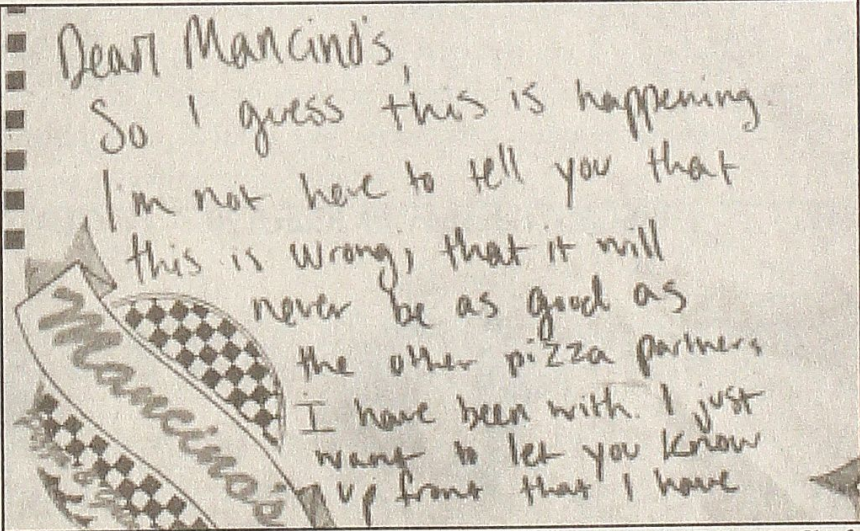 Dear Mancino's,
So I guess this is happening.
I'm not here to tell you that
this is wrong; that it will
never be as good as
the other pizza partners
I have been with. I just
want to let you know
up front that I have
Mancino's